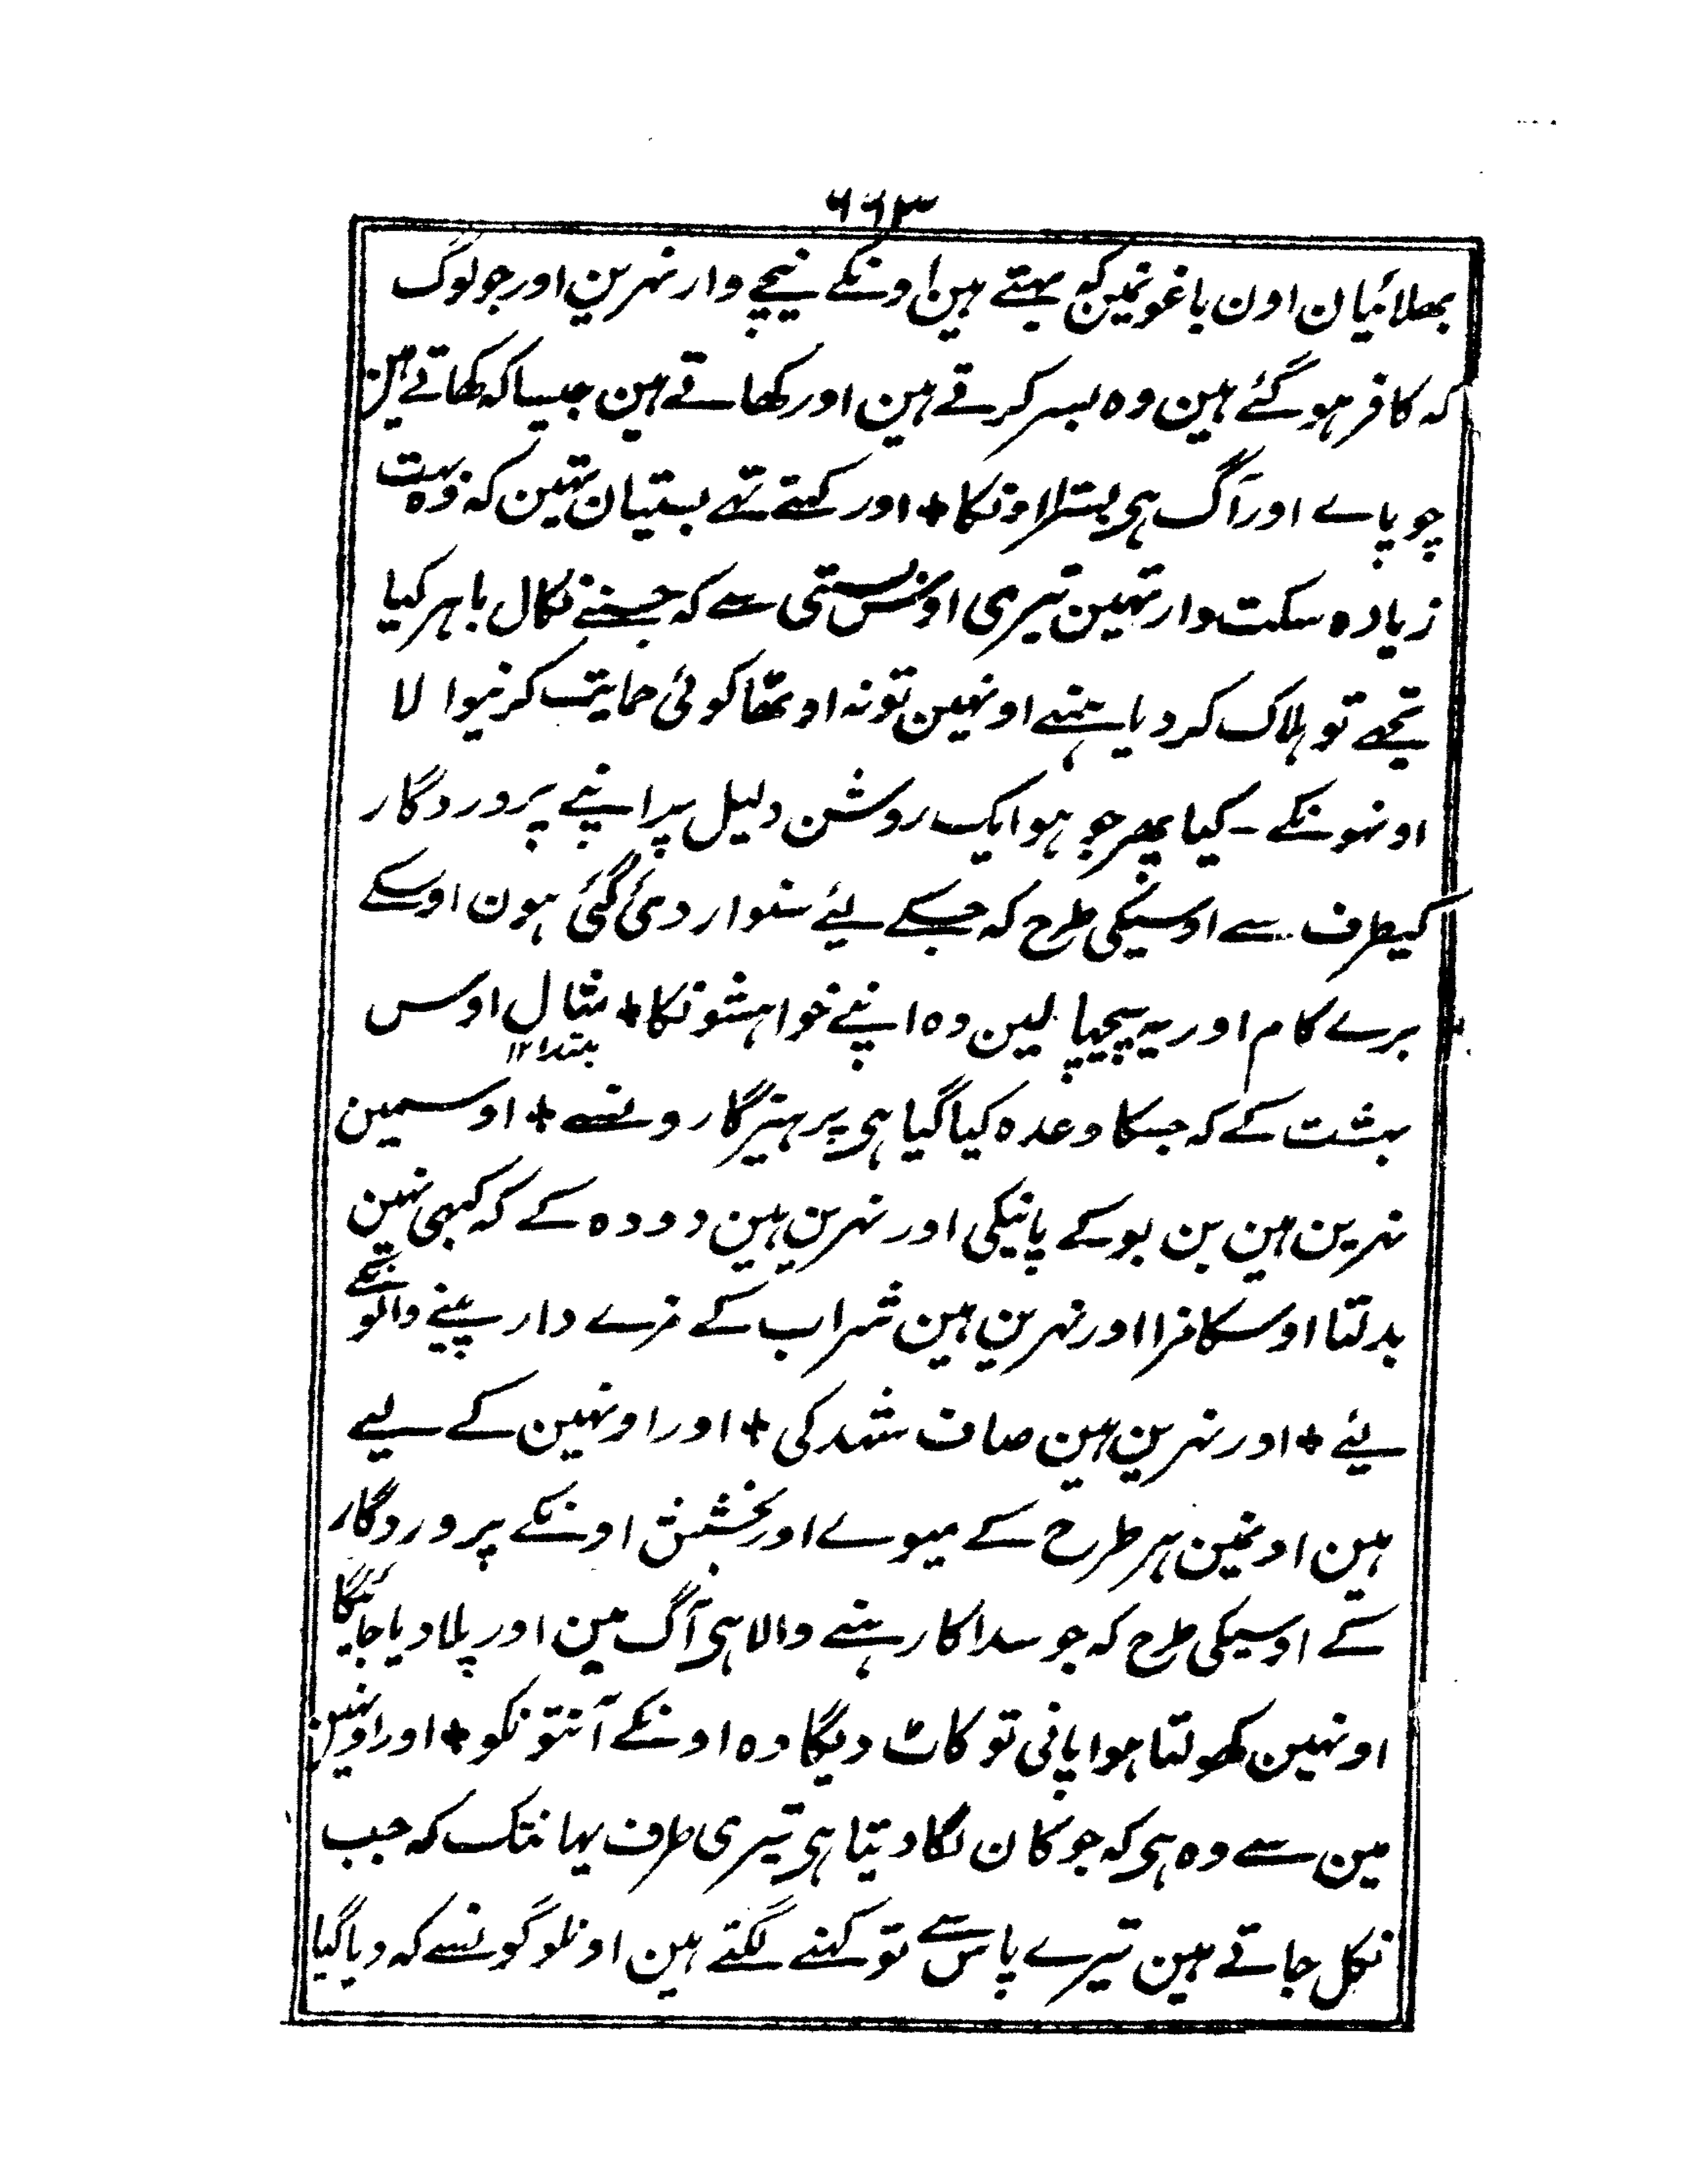 ۶۶۳
بھلائیان اون باغونمین کہ بہتے ہین اونکے نیچے وار نہرین اور جو لوگ
کہ کافر ہو گئے ہین وہ بسر کرتے ہین اور کھاتے ہین جیسا کہ کھاتے ہین
چوپاے اور آگ ہی بسترا اونکا + اور کہتے تہے بستیان تہین کہ وہ بہت
زیادہ سکت وار تہین تیری اوس بستی سے کہ جسنے نکال باہر کیا
تجھے تو ہلاک کر دیا ہمنے اونہین تو نہ اوٹھا کوئی حمایت کرنیوالا
اونہونکے - کیا پھر جو ہو ایک روشن دلیل پر اپنے پروردگار
کیطرف سے اوسیکی طرح کہ جسکے لیئے سنوار دئی گئی ہون اوسکے
برے کام اور یہ پیچھا لین وہ اپنے خواہشونکا + مثال اوس
مبتدا ۱۲
بہشت کے کہ جسکا وعدہ کیا گیا ہی پرہیزگارونسے + اوسمین
نہرین ہین بن بو کے پانیکی اور نہرین ہین دودہ کے کہ کبہی نہین
بدلتا اوسکا مزا اور نہرین ہین شراب کے مزے دار پینے والونکے
لیئے + اور نہرین ہین صاف شہد کی + اور اونہین کے لیے
ہین اونمین ہر طرح کے میوے اور بخشش اونکے پروردگار
کے اوسیکی طرح کہ جو سدا کا رہنے والا ہی آگ مین اور پلا دیا جائیگا
اونہین کھولتا ہوا پانی تو کاٹ دیگا وہ اونکے آنتونکو + اور اونہین
مین سے وہ ہی کہ جو کان لگا دیتا ہی تیری طرف یہانتک کہ جب
نکل جاتے ہین تیرے پاس سے تو کہنے لگتے ہین اون لوگونسے کہ دیا گیا